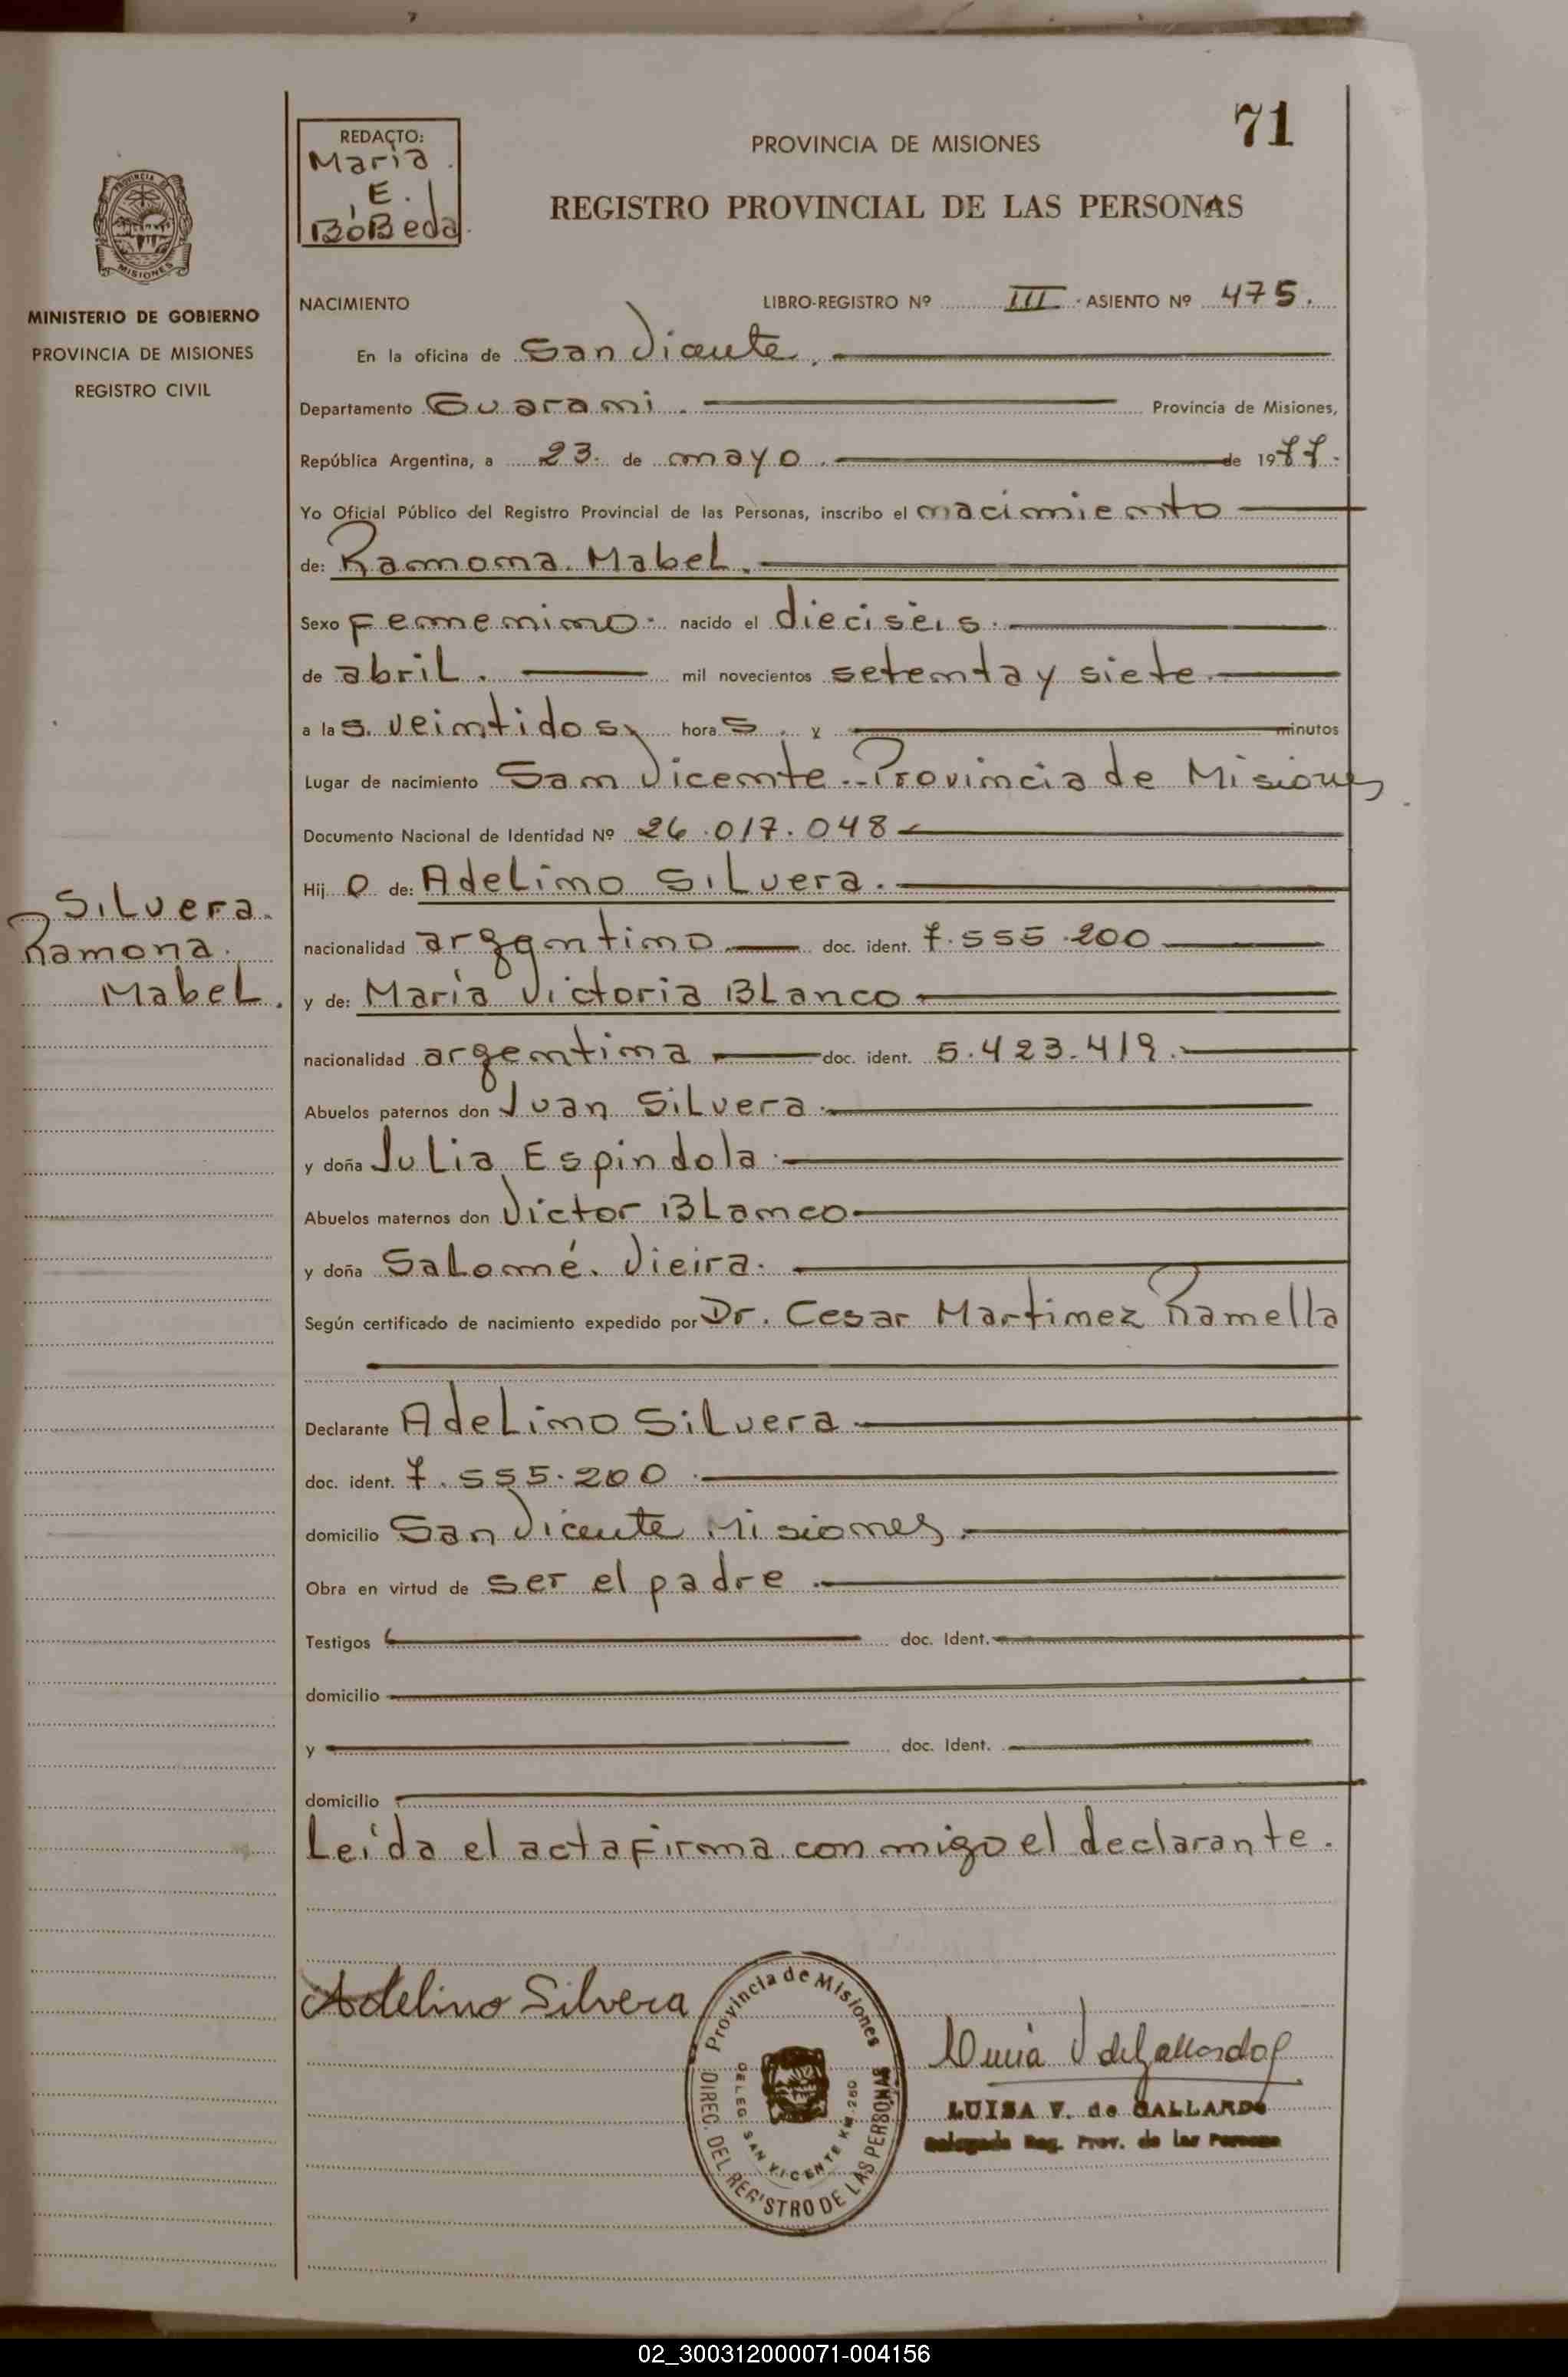 71
REDACTO:
Maria
E.
BoBeda
PROVINCIA DE MISIONES
REGISTRO PROVINCIAL DE LAS PERSONAS
PROVINCIA DE
MISIONES
MINISTERIO DE GOBIERNO
PROVINCIA DE MISIONES
REGISTRO CIVIL
NACIMIENTO LIBRO-REGISTRO Nº III · ASIENTO Nº 475.
En la oficina de San Vicente.
Departamento Guarani. Provincia de Misiones,
República Argentina, a 23. de mayo. de 1977.
Yo Oficial Público del Registro Provincial de las Personas, inscribo el nacimiento
de: Ramona. Mabel.
Sexo Femenino. nacido el dieciseis.
de abril. mil novecientos setenta y siete.
a las. veintidos, horas. y minutos
Lugar de nacimiento San Vicente.-Provincia de Misiones
Documento Nacional de Identidad Nº 26.017.048
Hijo de: Adelino Silvera.
Silvera.
Ramona.
Mabel.
nacionalidad argentino doc. ident. 7.555.200
y de: María Victoria Blanco
nacionalidad argentina doc. ident. 5.423.419.
Abuelos paternos don Juan Silvera.
y doña Julia Espindola.
Abuelos maternos don Victor Blanco
y doña Salomé. Vieira.
Según certificado de nacimiento expedido por Dr. Cesar Martinez Ramella
Declarante Adelino Silvera
doc. ident. 7.555.200.
domicilio San Vicente Misiones.
Obra en virtud de ser el padre.
Testigos doc. Ident.
domicilio
y doc. Ident.
domicilio
Leída el acta firma con migo el declarante.
Adelino Silvera
Provincia de Misiones
DIREC. DEL REGISTRO DE LAS PERSONAS
DELEG. SAN VICENTE KM. 260
Luisa V de Gallardo
LUISA V. de GALLARDO
Delegada Reg. Prov. de las Personas
02_300312000071-004156